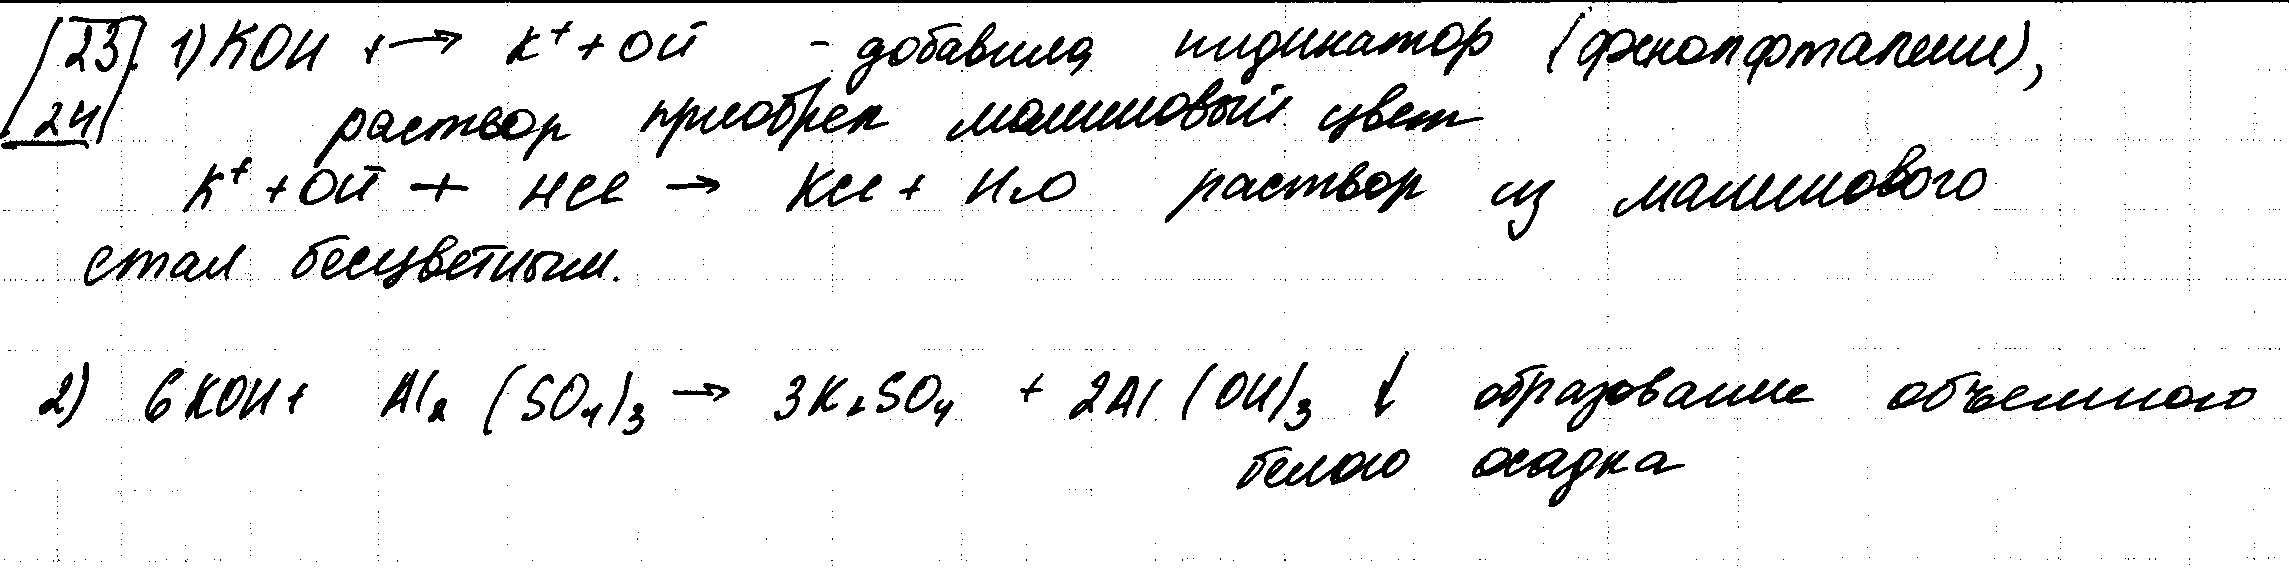 23. 1) KOH +→ K⁺ + OH⁻ - добавила индикатор (фенолфталеин),
24 раствор приобрел малиновый цвет
K⁺ + OH⁻ + HCl → KCl + H₂O раствор из малинового
стал бесцветным.
2) 6KOH + Al₂(SO₄)₃ → 3K₂SO₄ + 2Al(OH)₃ ↓ образование объемного
белого осадка